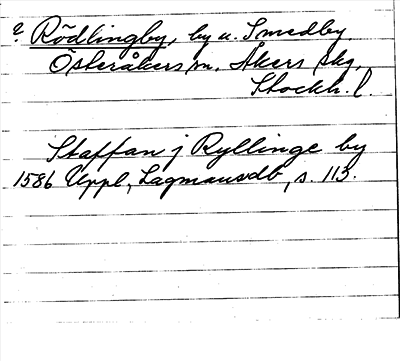 ? Rödlingby, by u. Smedby.
Österåkers sn, Åkers skg,
Stockh. l.
Staffan j Ryllinge by
1586 Uppl, Lagmansdb, s. 113.